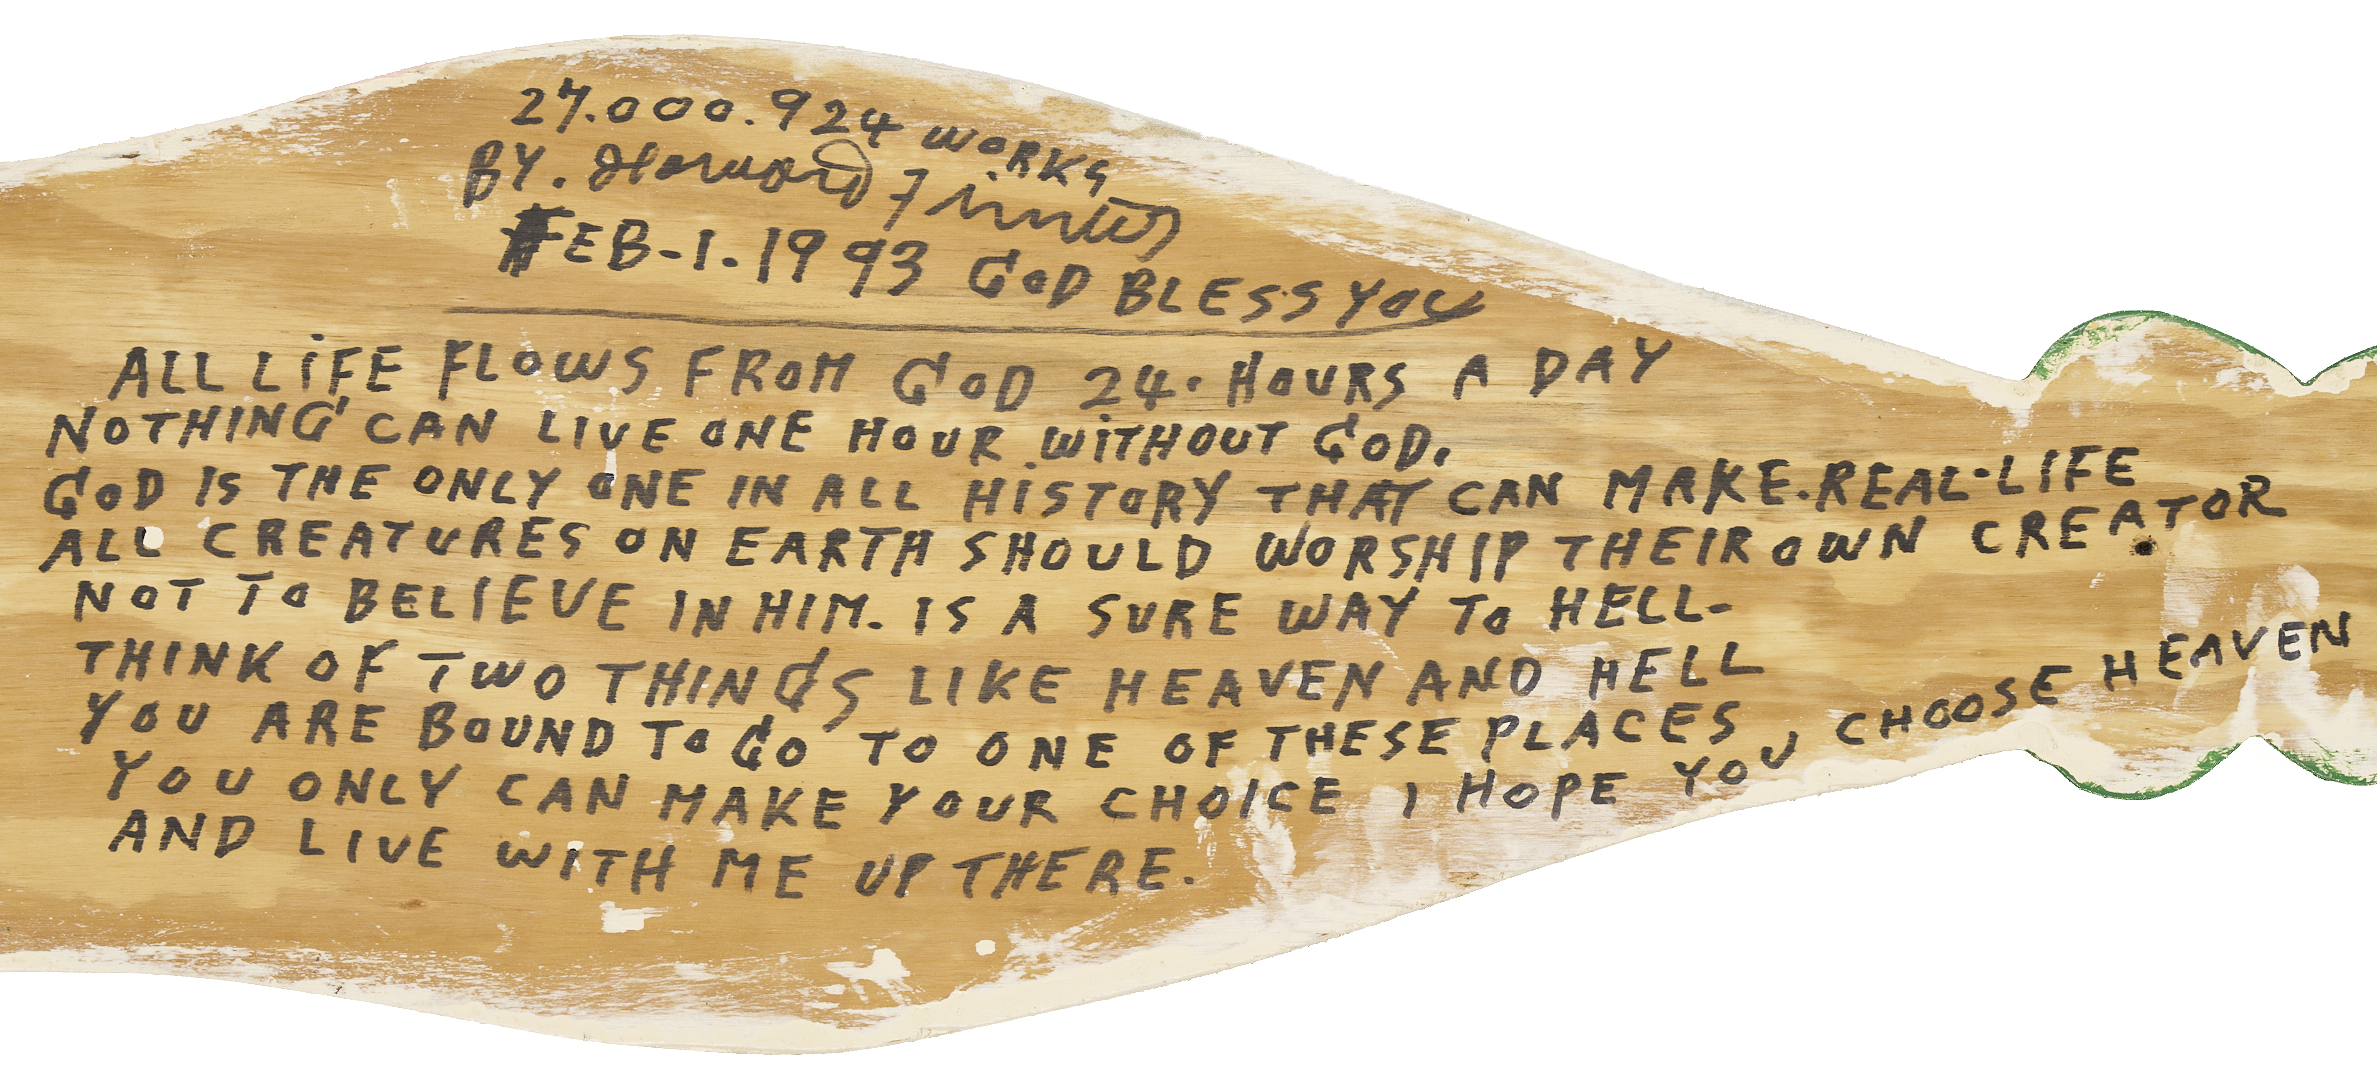 27.000.924 WORKS
BY. Howard Finster
FEB-1.1993 GOD BLESS YOU
ALL LiFE FLOWS FROM GOD 24. HOURS A DAY
NOTHING CAN LIVE ONE HOUR WiTHOUT GOD.
GOD IS THE ONLY ONE IN ALL HiSTORY THAT CAN MAKE.REAL-LIFE
ALL CREATURES ON EARTH SHOULD WORSHIP THEIR OWN CREATOR
NOT TO BELIEVE IN HIM. IS A SURE WAY TO HELL-
THINK OF TWO THINGS LIKE HEAVEN AND HELL
YOU ARE BOUND TO GO TO ONE OF THESE PLACES
YOU ONLY CAN MAKE YOUR CHOICE I HOPE YOU CHOOSE HEAVEN
AND LIVE WITH ME UP THERE.